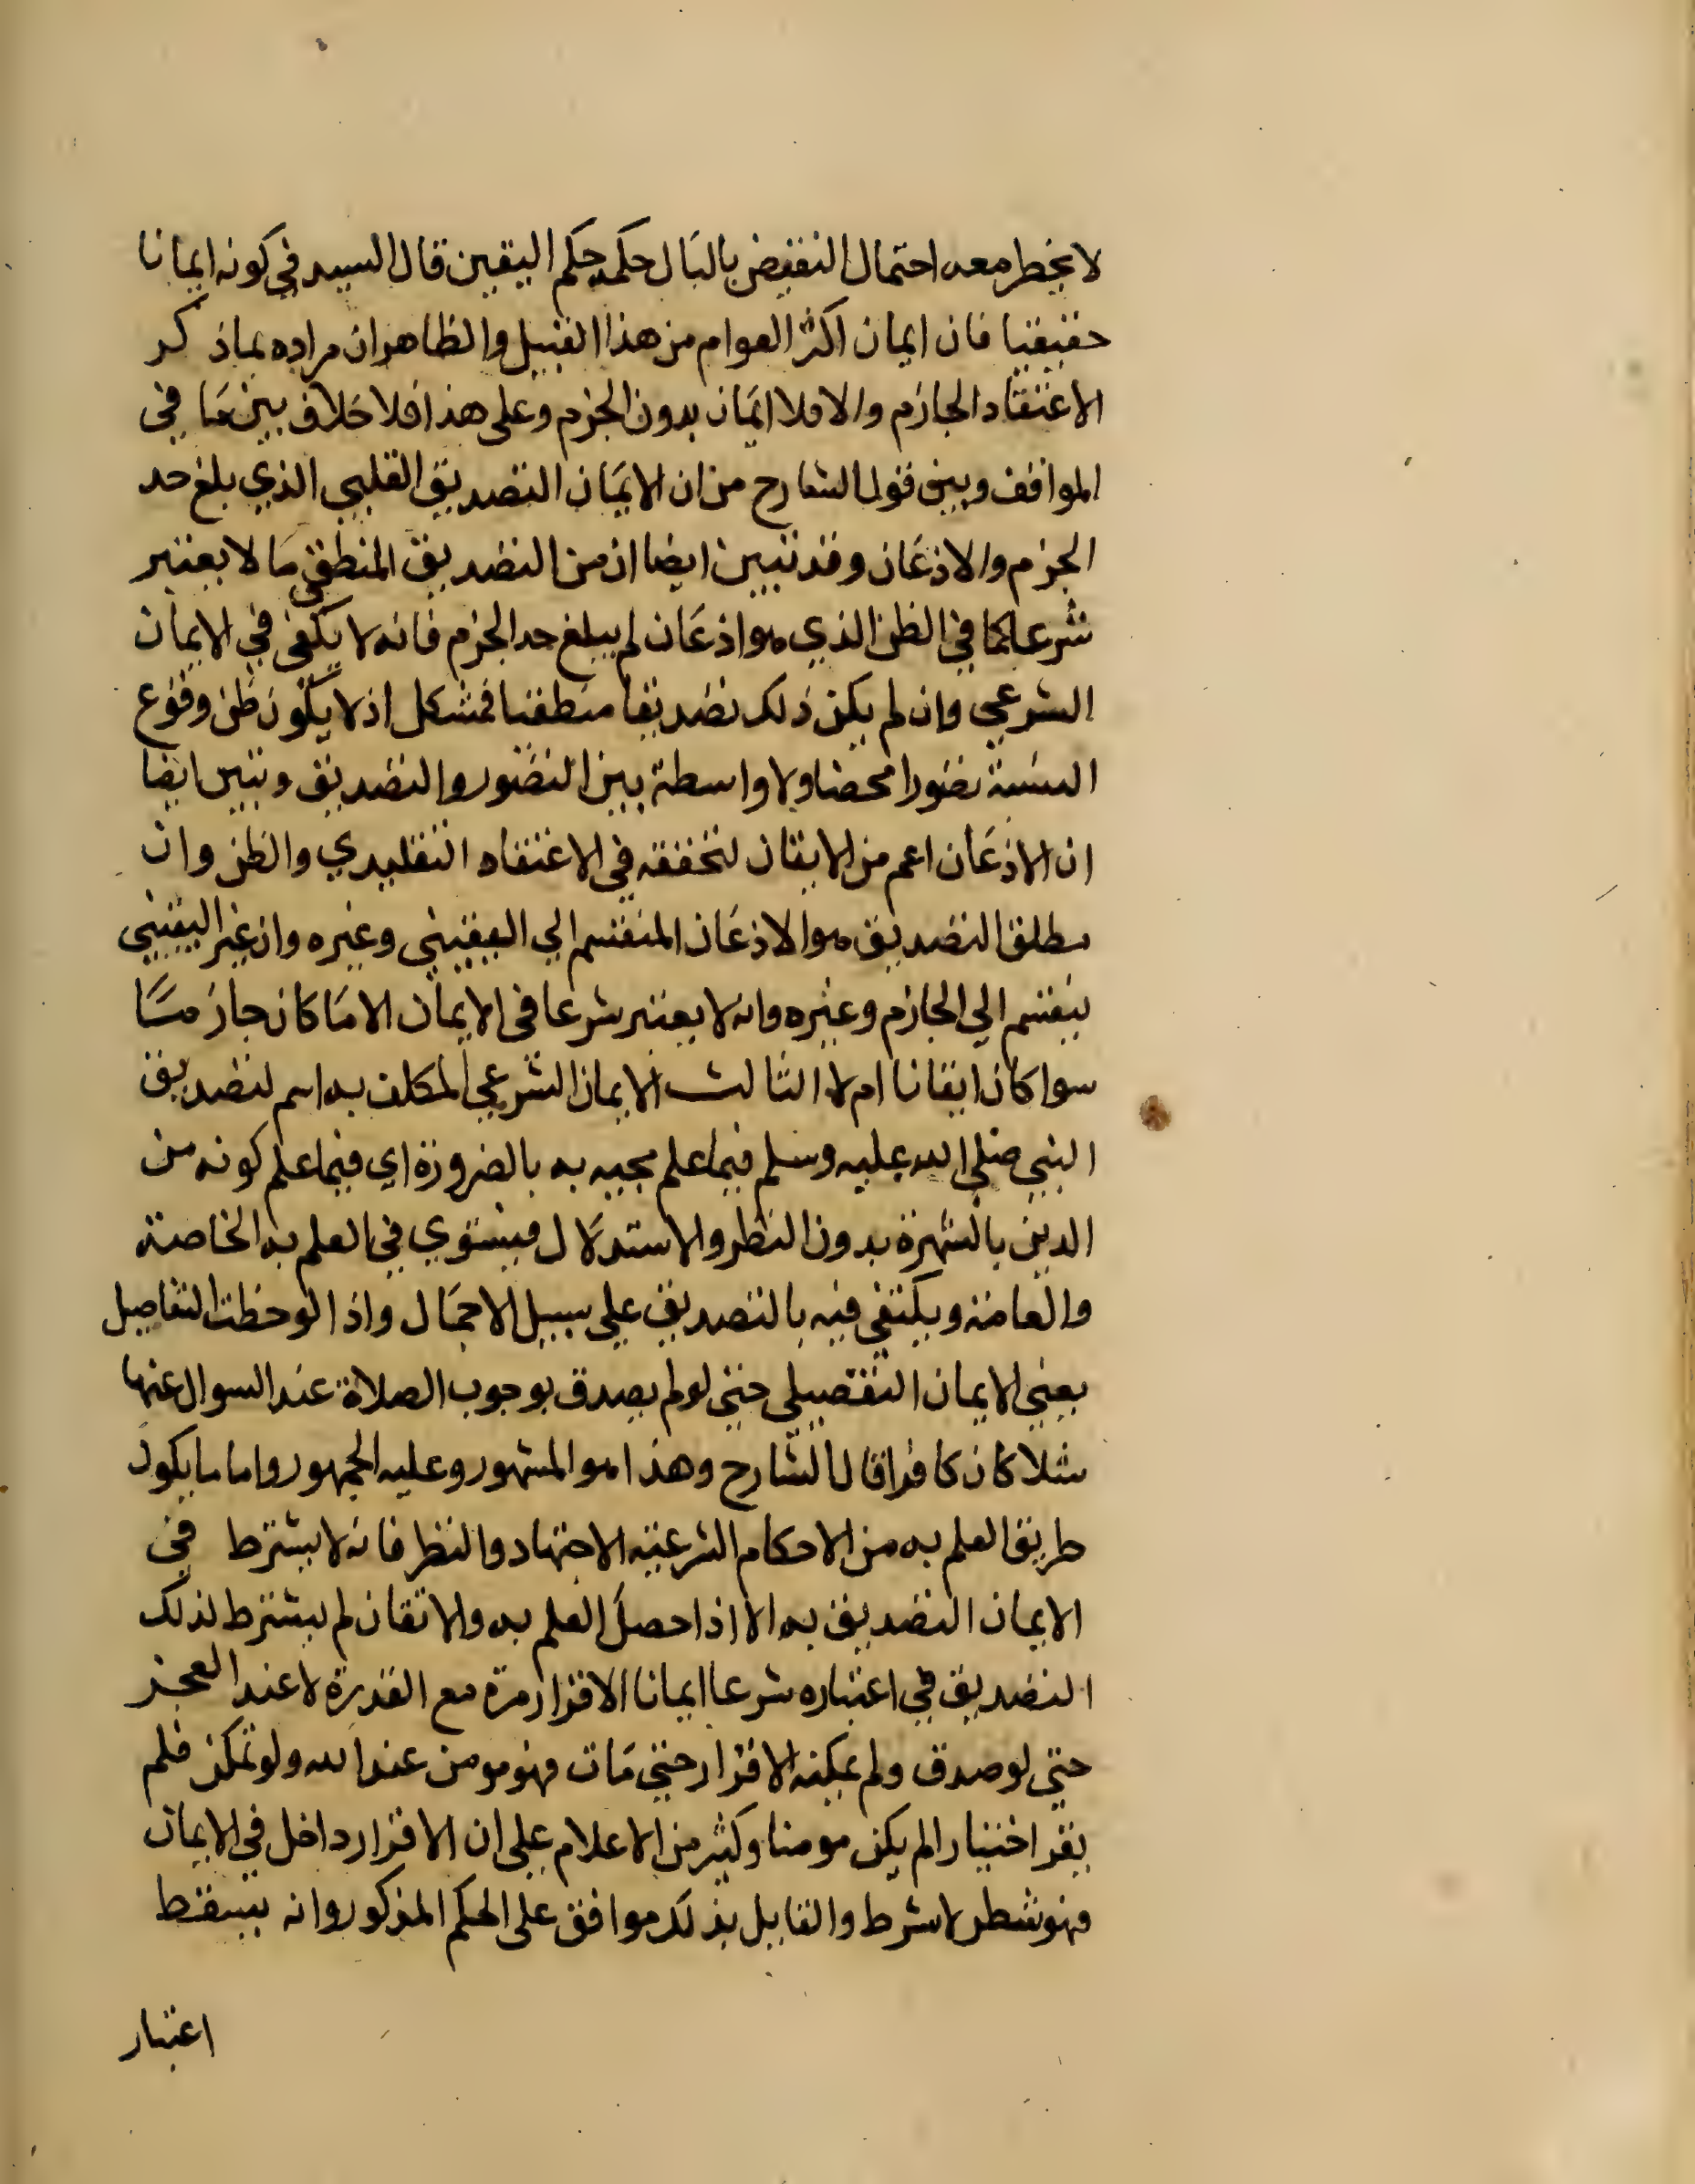 لا يخطر معه احتمال النقيض بالبال حكمه حكم اليقين قال السيد في كونه ايمانا
حقيقيا فان ايمان اكثر العوام من هذا القبيل والظاهر ان مراده بما ذكر
الاعتقاد الجازم والا فلا ايمان بدون الجزم وعلى هذا فلا خلاف بين ما في
المواقف وبين قول الشارح من ان الايمان التصديق القلبي الذي بلغ حد
الجزم والاذعان وقد تبين ايضا ان من التصديق المنطقي ما لا يعتبر
شرعا كما في الظن الذي هو اذعان لم يبلغ حد الجزم فانه لا يكفي في الايمان
الشرعي وان لم يكن ذلك تصديقا منطقيا فمشكل اذ لا يكون ظن وقوع
النسبة تصورا محضا ولا واسطة بين التصور والتصديق وتبين ايضا
ان الاذعان اعم من الايقان لتحققه في الاعتقاد التقليدي والظن وان
مطلق التصديق هو الاذعان المنقسم الي اليقيني وغيره وان غير اليقيني
ينقسم الي الجازم وغيره وانه لا يعتبر شرعا في الايمان الا ما كان جازما
سوا كان ايقانا ام لا الثالث الايمان الشرعي المكلف به اسم لتصديق
النبي صلي الله عليه وسلم فيما علم مجيه به بالضرورة اي فيما علم كونه من
الدين بالشهرة بدون النظر والاستدلال فيستوي في العلم به الخاصة
والعامة ويكتفي فيه بالتصديق علي سبيل الاجمال واذا لوحظت التفاصيل
يعني الايمان التفصيلي حتي لو لم يصدق بوجوب الصلاة عند السوال عنها
مثلا كان كافرا قال الشارح وهذا هو المشهور وعليه الجمهور واما ما يكون
طريق العلم به من الاحكام الشرعية الاجتهاد والنظر فانه لا يشترط في
الايمان التصديق به الا اذا حصل العلم به والاتقان لم يشترط لذلك
التصديق في اعتباره شرعا ايمانا الاقرار مرة مع القدرة لا عند العجز
حتي لو صدق ولم يمكنه الاقرار حتي مات فهو مومن عند الله ولو تمكن فلم
يقر اختيارا لم يكن مومنا وكثير من الاعلام علي ان الاقرار داخل في الايمان
فهو شطر لا شرط والقايل بذلك موافق على الحكم المذكور وانه يسقط
اعتبار